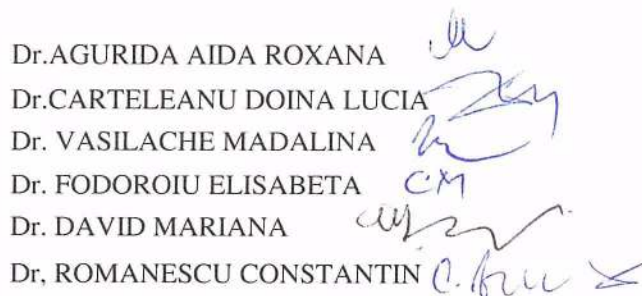 Dr.AGURIDA AIDA ROXANA
Dr.CARTELEANU DOINA LUCIA
Dr. VASILACHE MADALINA
Dr. FODOROIU ELISABETA CM
Dr. DAVID MARIANA
Dr, ROMANESCU CONSTANTIN